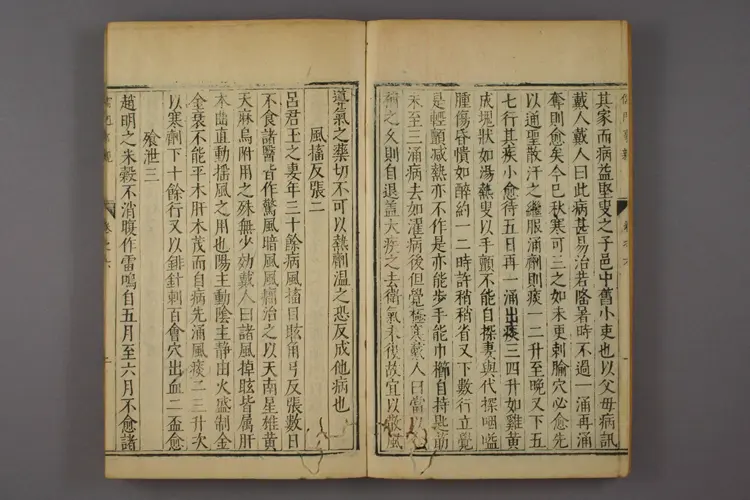 其家而病益堅叟之子邑中舊小吏也以父母病訊
戴人戴人曰此病甚易治若隆暑時不過一涌再涌
奪則愈矣今已秋寒可三之如未更刺腧穴必愈先
以通聖散汗之繼服涌劑則痰一二升至晚又下五
七行其疾小愈待五日再一涌出痰三四升如雞黃
成塊狀如湯熱叟以手顫不能自探妻與代探咽嗌
腫傷昏憒如醉約一二時許稍稍省又下數行立覺
足輕顫減熱亦不作足亦能步手能巾櫛自持匙筯
未至三涌病去如濯病後但覺極寒戴人曰當以
補之久則自退蓋大疾之去衛氣未復故宜以散風
導氣之藥切不可以熱劑溫之恐反成他病也
風搐反張二
呂君王之妻年三十餘病風搐目眩角弓反張數日
不食諸醫皆作驚風暗風風癎治之以天南星雄黃
天麻烏附用之殊無少効戴人曰諸風掉眩皆屬肝
木曲直動搖風之用也陽主動陰主靜由火盛制金
金衰不能平木肝木茂而自病先涌風痰二三升次
以寒劑下十餘行又以鈹針刺百會穴出血二盃愈
飱泄三
趙明之米穀不消腹作雷鳴自五月至六月不愈諸